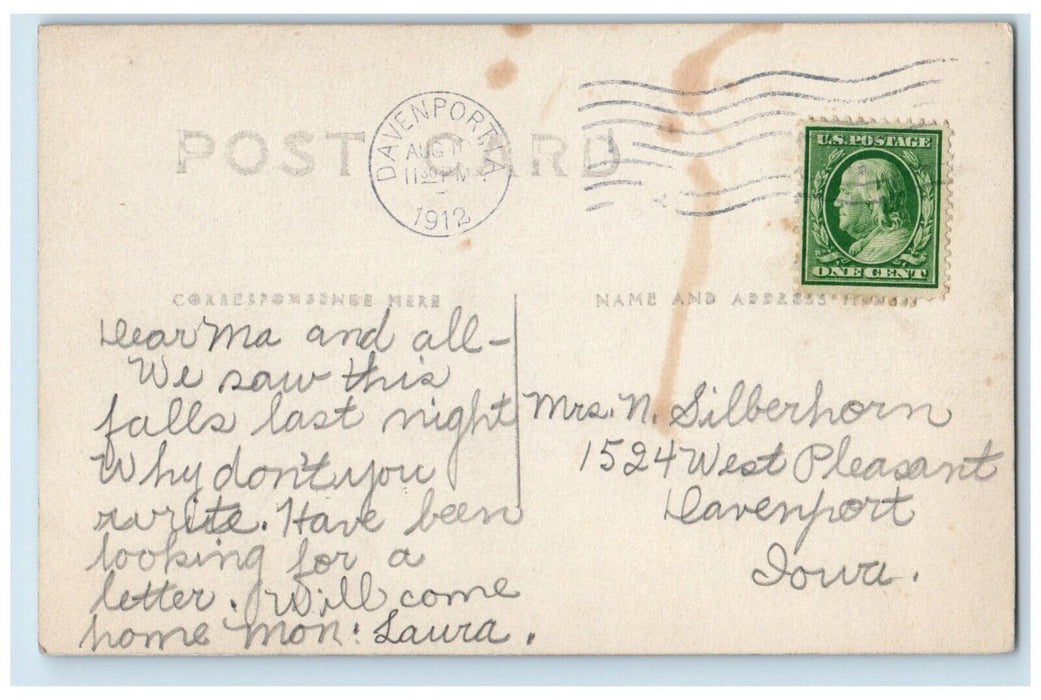 POST CARD
DAVENPORT, IA
AUG 10
11 30 PM
1912
U.S. POSTAGE
ONE CENT
CORRESPONDENCE HERE
NAME AND ADDRESS
Dear Ma and all-
We saw this
falls last night
Why don't you
write. Have been
looking for a
letter. Will come
home Mon: Laura.
Mrs. N. Silberhorn
1524 West Pleasant
Davenport
Iowa.